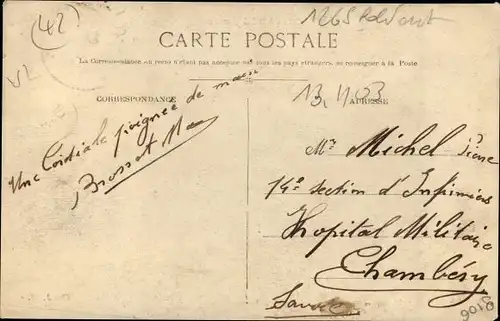 (42)
CARTE POSTALE
La Correspondance au recto n'étant pas acceptée par tous les pays étrangers, se renseigner à la Poste
CORRESPONDANCE
ADRESSE
Une Cordiale poignée de main
Brossat
Mr Michel Pierre
14e section d'Infirmiers
Hopital Militaire
Chambéry
Savoie